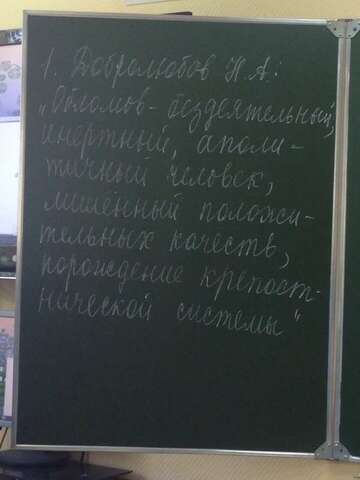 1. Добролюбов Н.А:
„Обломов - бездеятельный,
инертный, аполи-
тичный человек,
лишённый положи-
тельных качеств,
порождение крепост-
нической системы"